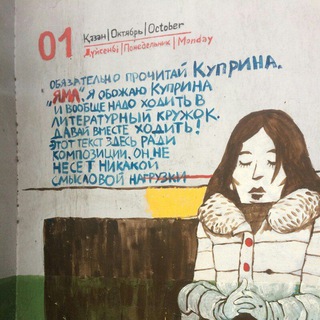 01
Қазан|Октябрь|October
Дүйсенбі|Понедельник|Monday
ОБЯЗАТЕЛЬНО ПРОЧИТАЙ КУПРИНА.
„ЯМА“. Я ОБОЖАЮ КУПРИНА
И ВООБЩЕ НАДО ХОДИТЬ В
ЛИТЕРАТУРНЫЙ КРУЖОК.
ДАВАЙ ВМЕСТЕ ХОДИТЬ!
ЭТОТ ТЕКСТ ЗДЕСЬ РАДИ
КОМПОЗИЦИИ. ОН НЕ
НЕСЕТ НИКАКОЙ
СМЫСЛОВОЙ НАГРУЗКИ